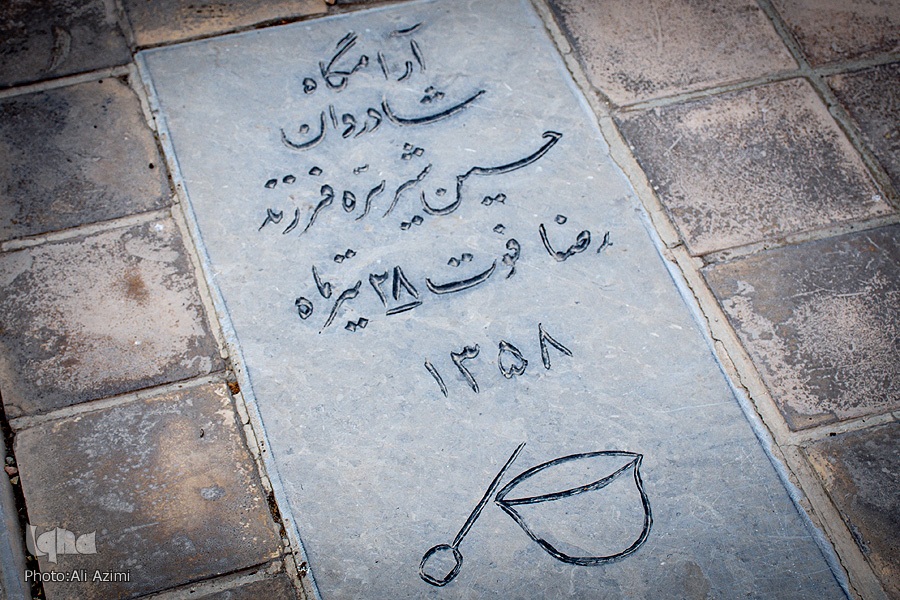 آرامگاه
شادروان
حسین شیر تره فرزند
رضا فوت ۲۸ تیرماه
۱۳۵۸
iqna
Photo:Ali Azimi